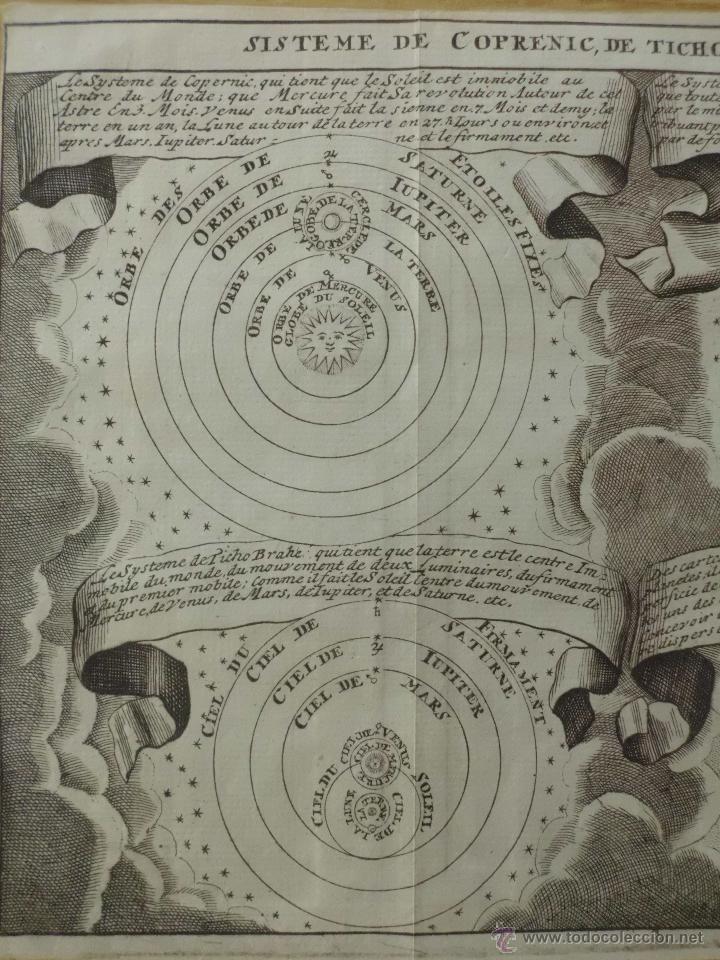 SISTEME DE COPRENIC, DE TICHO
Le Systeme de Copernic, qui tient que le Soleil est immobile au
Centre du Monde; que Mercure fait Sa revolution Autour de cet
Astre En 3. Mois. Venus en Suite fait la sienne en 7. Mois et demy; la
terre en un an, la Lune autour de la terre en 27. Iours ou environ; et
apres Mars, Iupiter, Satur =
ne et le firmament. etc.
Le Syst
que tout
par le m
tribuant p
par de fo
ORBE DES ETOILES FIXES
ORBE DE SATURNE
ORBE DE IUPITER
ORBE DE MARS
CERCLE DE LA LUNE
GLOBE DE LA TERRE
ORBE DE LA TERRE
ORBE DE VENUS
ORBE DE MERCURE
GLOBE DU SOLEIL
Le Systeme de Ticho Brahe qui tient que la terre est le centre Im=
mobile du monde, du mouvement de deux Luminaires, du firmament
et du premior mobile; comme il fait le Soleil Centre du mouvement, de
Mercure, de Venus, de Mars, de Iupiter, et de Saturne. etc.
Des carte
planetes, d
perficie de
Concevoir
dispers
CIEL DU FIRMAMENT
CIEL DE SATURNE
CIEL DE IUPITER
CIEL DE MARS
CIEL DU SOLEIL
CIEL DE VENUS
CIEL DE MERCURE
CIEL DE LA LUNE
LA TERRE
© www.todocoleccion.net